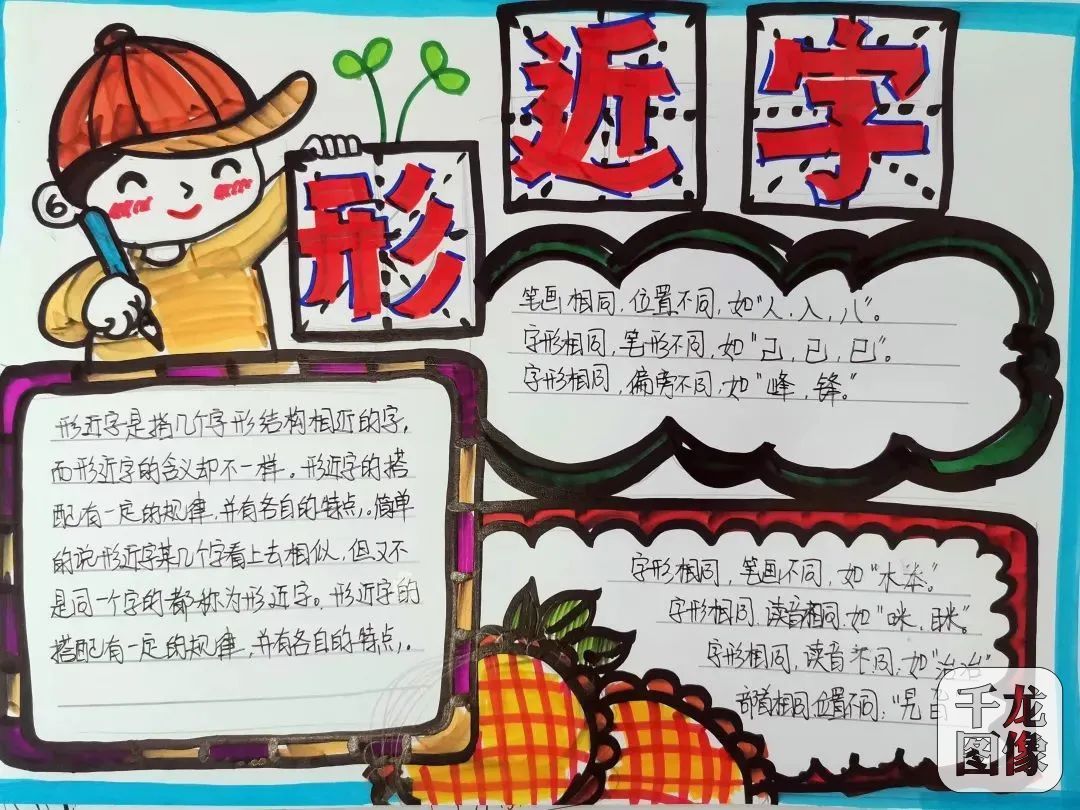 形近字
笔画相同，位置不同，如"人，入，八"。
字形相同，笔形不同，如"己，已，巳"。
字形相同，偏旁不同，如"峰，锋。"
形近字是指几个字形结构相近的字，
而形近字的含义却不一样。形近字的搭
配有一定的规律，并有各自的特点，。简单
的说形近字某几个字看上去相似，但又不
是同一个字的都称为形近字。形近字的
搭配有一定的规律，并有各自的特点，。
字形相同，笔画不同，如"木本。"
字形相同，读音相同，如"咪，眯。"
字形相同，读音不同，如"治冶"
部首相同位置不同，"
千龙
图像